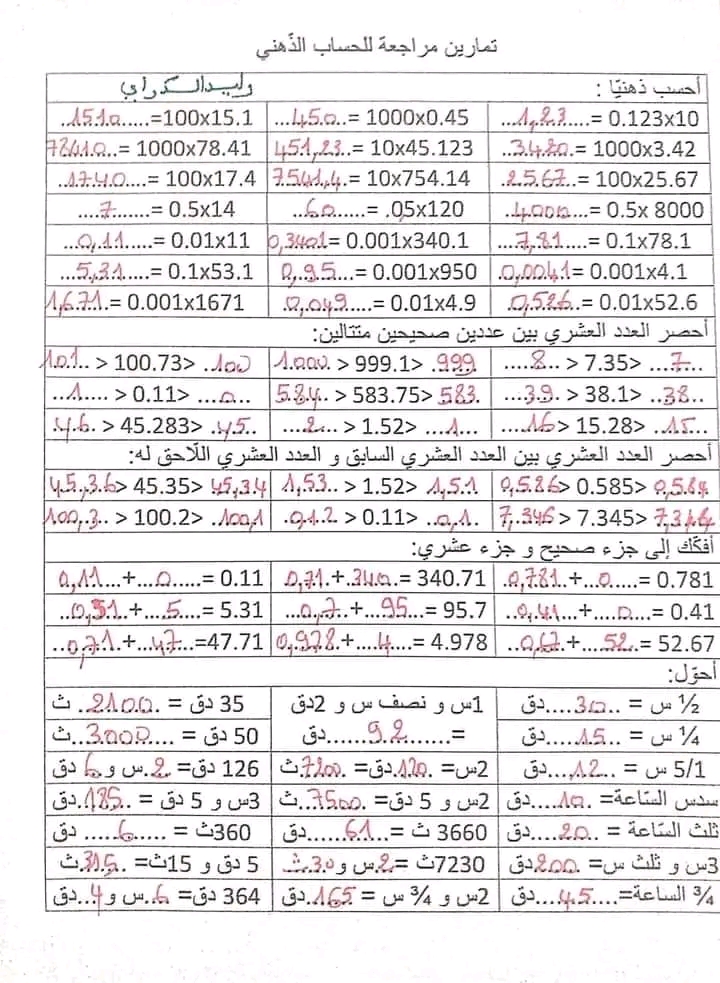 تمارين مراجعة للحساب الذّهني
أحسب ذهنيّا : وليد الكراي
...1,23....= 0.123x10 ...450..= 1000x0.45 ..1510.....=100x15.1
..3420..= 1000x3.42 451,23..= 10x45.123 78410..= 1000x78.41
..2567..= 100x25.67 7541,4.= 10x754.14 ..1740....= 100x17.4
..4000...= 0.5x 8000 ...60......= .05x120 ....7.......= 0.5x14
...7,81....= 0.1x78.1 0,3401= 0.001x340.1 ...0,11.....= 0.01x11
.0,0041= 0.001x4.1 0,95....= 0.001x950 ...5,31....= 0.1x53.1
.0,526..= 0.01x52.6 .0,049....= 0.01x4.9 1,671.= 0.001x1671
أحصر العدد العشري بين عددين صحيحين متتالين:
.....8... > 7.35> ...7... 1000. > 999.1> .999 101.. > 100.73> .100
...39. > 38.1> ..38.. 584. > 583.75> 583. ...1.... > 0.11> ....0...
....16> 15.28> ..15... ....2... > 1.52> ....1... 46. > 45.283> .45..
أحصر العدد العشري بين العدد العشري السابق و العدد العشري اللّاحق له:
0,586> 0.585> 0,584 1,53.. > 1.52> .1,51 45,36> 45.35> 45,34
7,346 > 7.345> 7,344 0,12 > 0.11> ..0,1. 100,3.. > 100.2> .100,1
أفكّك إلى جزء صحيح و جزء عشري:
0,781.+...0.....= 0.781 0,71.+.340..= 340.71 0,11...+...0.....= 0.11
..0,41...+....0...= 0.41 ...0,7..+...95...= 95.7 ..0,31...+...5....= 5.31
..0,67.+....52.= 52.67 0,978.+....4....= 4.978 ..0,71.+...47..=47.71
أحوّل:
½ س = ..30....دق 1س و نصف س و 2دق 35 دق = ..2100. ث
¼ س = ...15....دق =.......92......دق 50 دق = ....3000..ث
5/1 س = ...12...دق 2س= .120.دق= .7200ث 126 دق= 2.س و 6 دق
سدس السّاعة= .10....دق 2س و 5 دق= .7500..ث 3س و 5 دق = .185..دق
ثلث السّاعة = ..20....دق 3660 ث = ...61.....دق 360ث = .....6..... دق
3س و ثلث س= .200دق 7230ث =2.س و30.ث 5 دق و 15ث= .315.ث
¾ الساعة=....45....دق 2س و ¾ س = .165..دق 364 دق= .6.س و4..دق